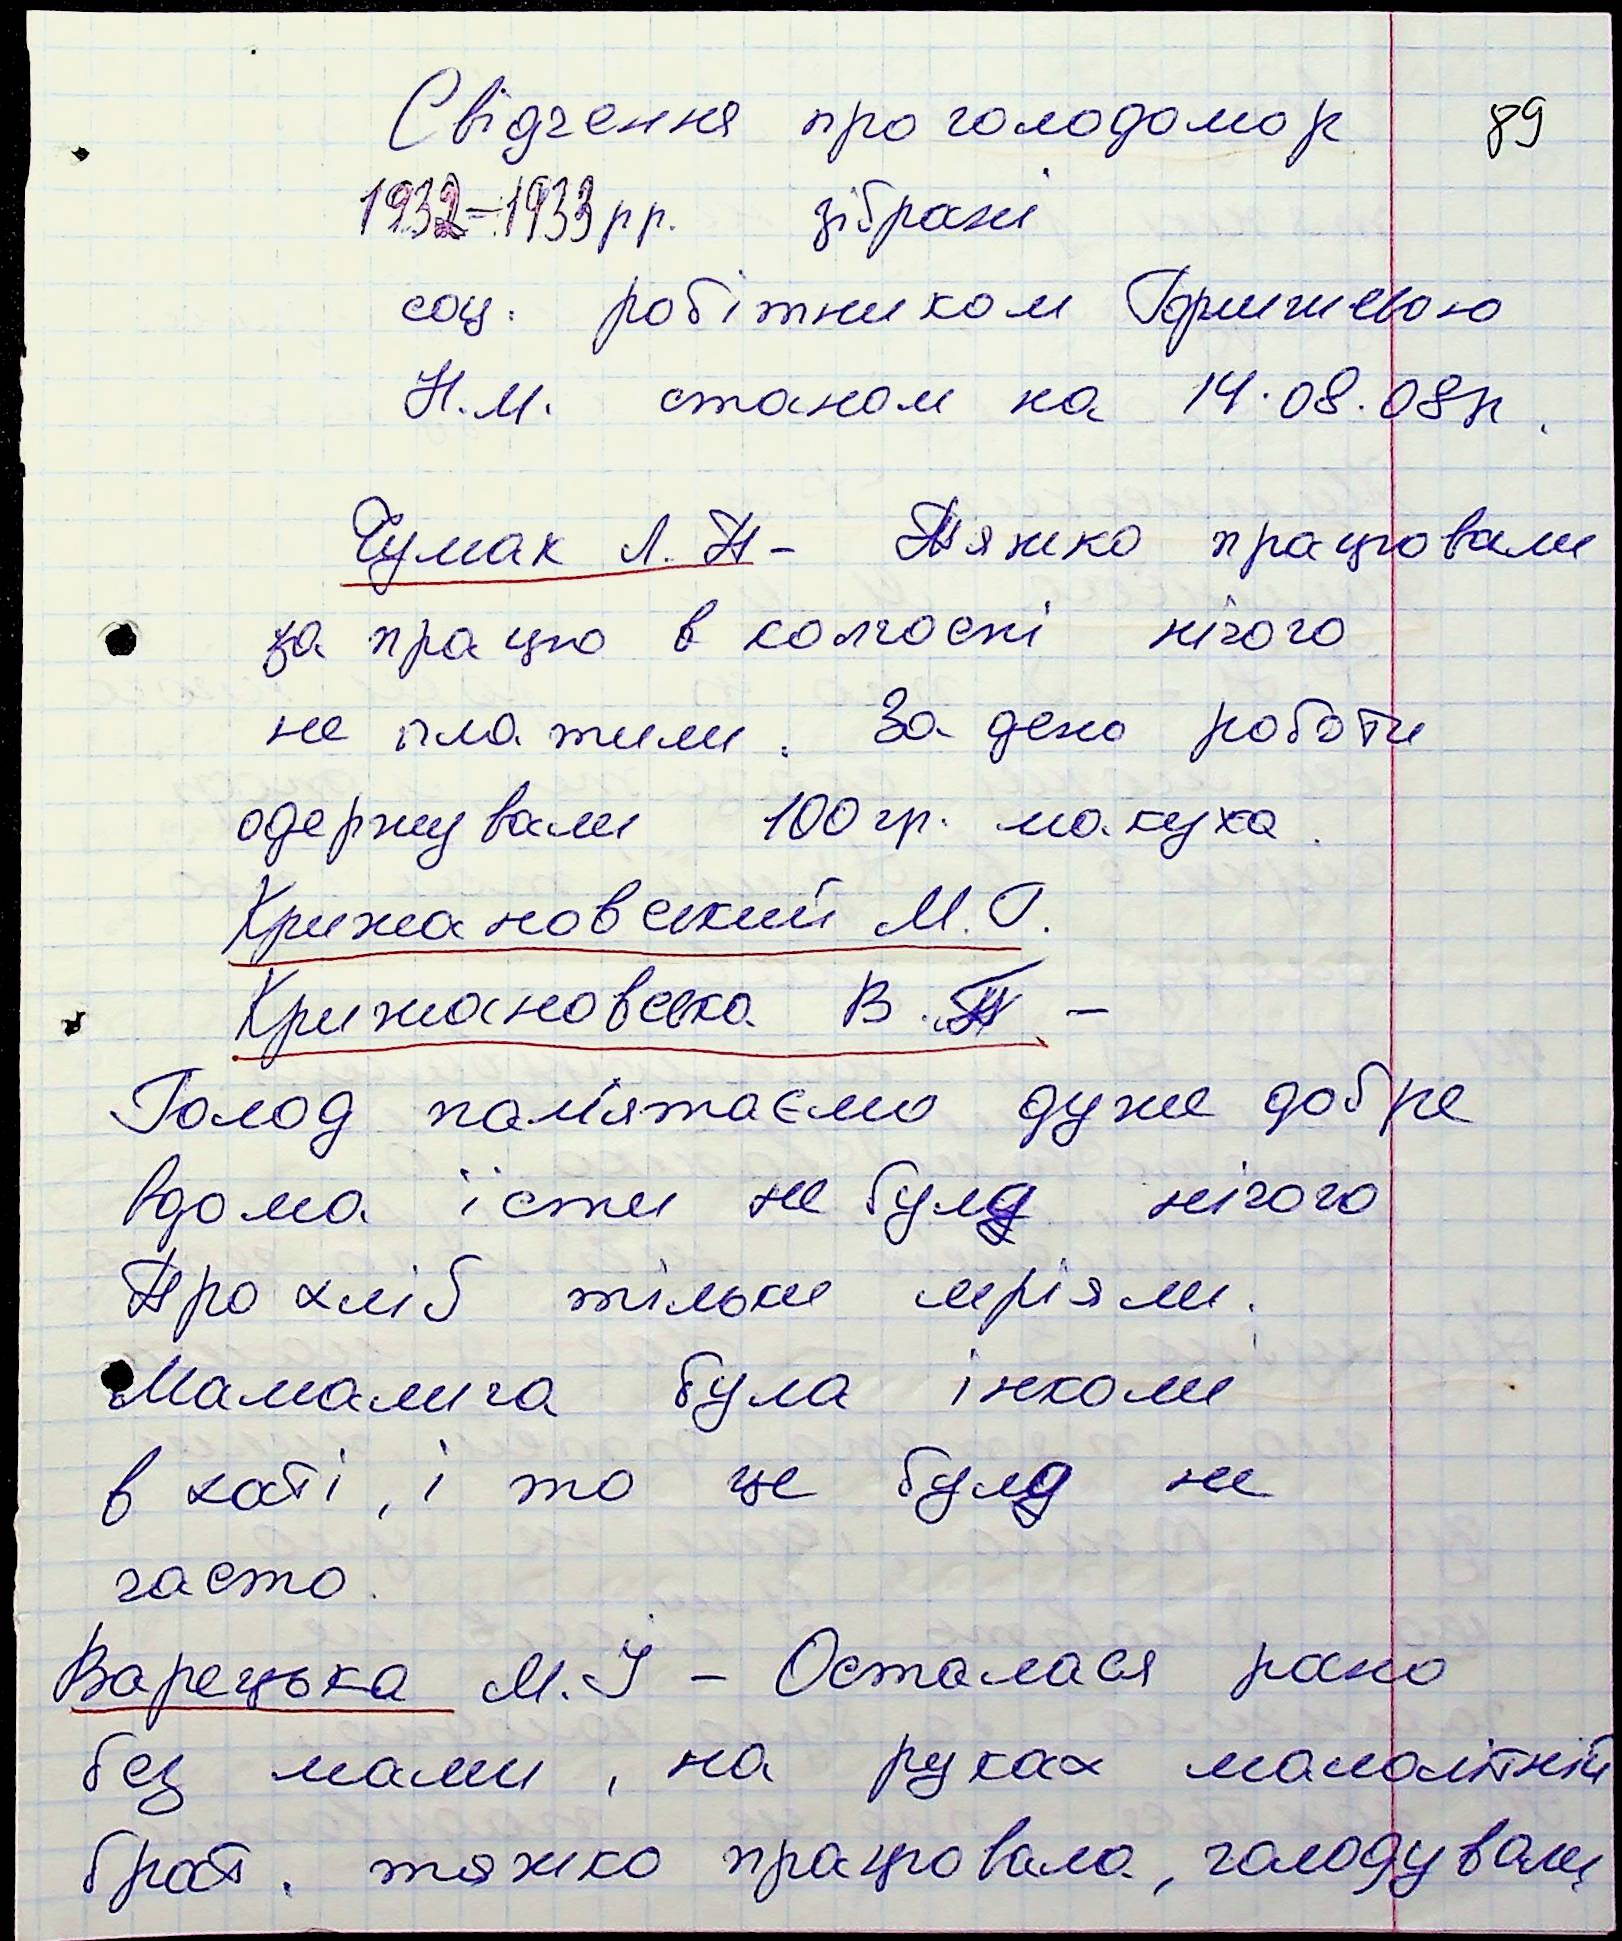 Свідчення про голодомор 89
1932-1933 рр. зібрані
соц. робітником
Н.М. станом на 14.08.08р.
Чумак Л. Н - Тяжко працювали
за працю в колгоспі нічого
не платили. За день роботи
одержували 100 гр. макуха.
Крижановський М. Г.
Крижановська В. П -
Голод пам'ятаємо дуже добре
вдома їсти не було нічого
Про хліб тільки мріяли.
Мамалига була інколи
в хаті, і то це було не
часто.
Варецька М. І - Осталася рано
без мами, на руках малолітній
брат. тяжко працювала, голодували